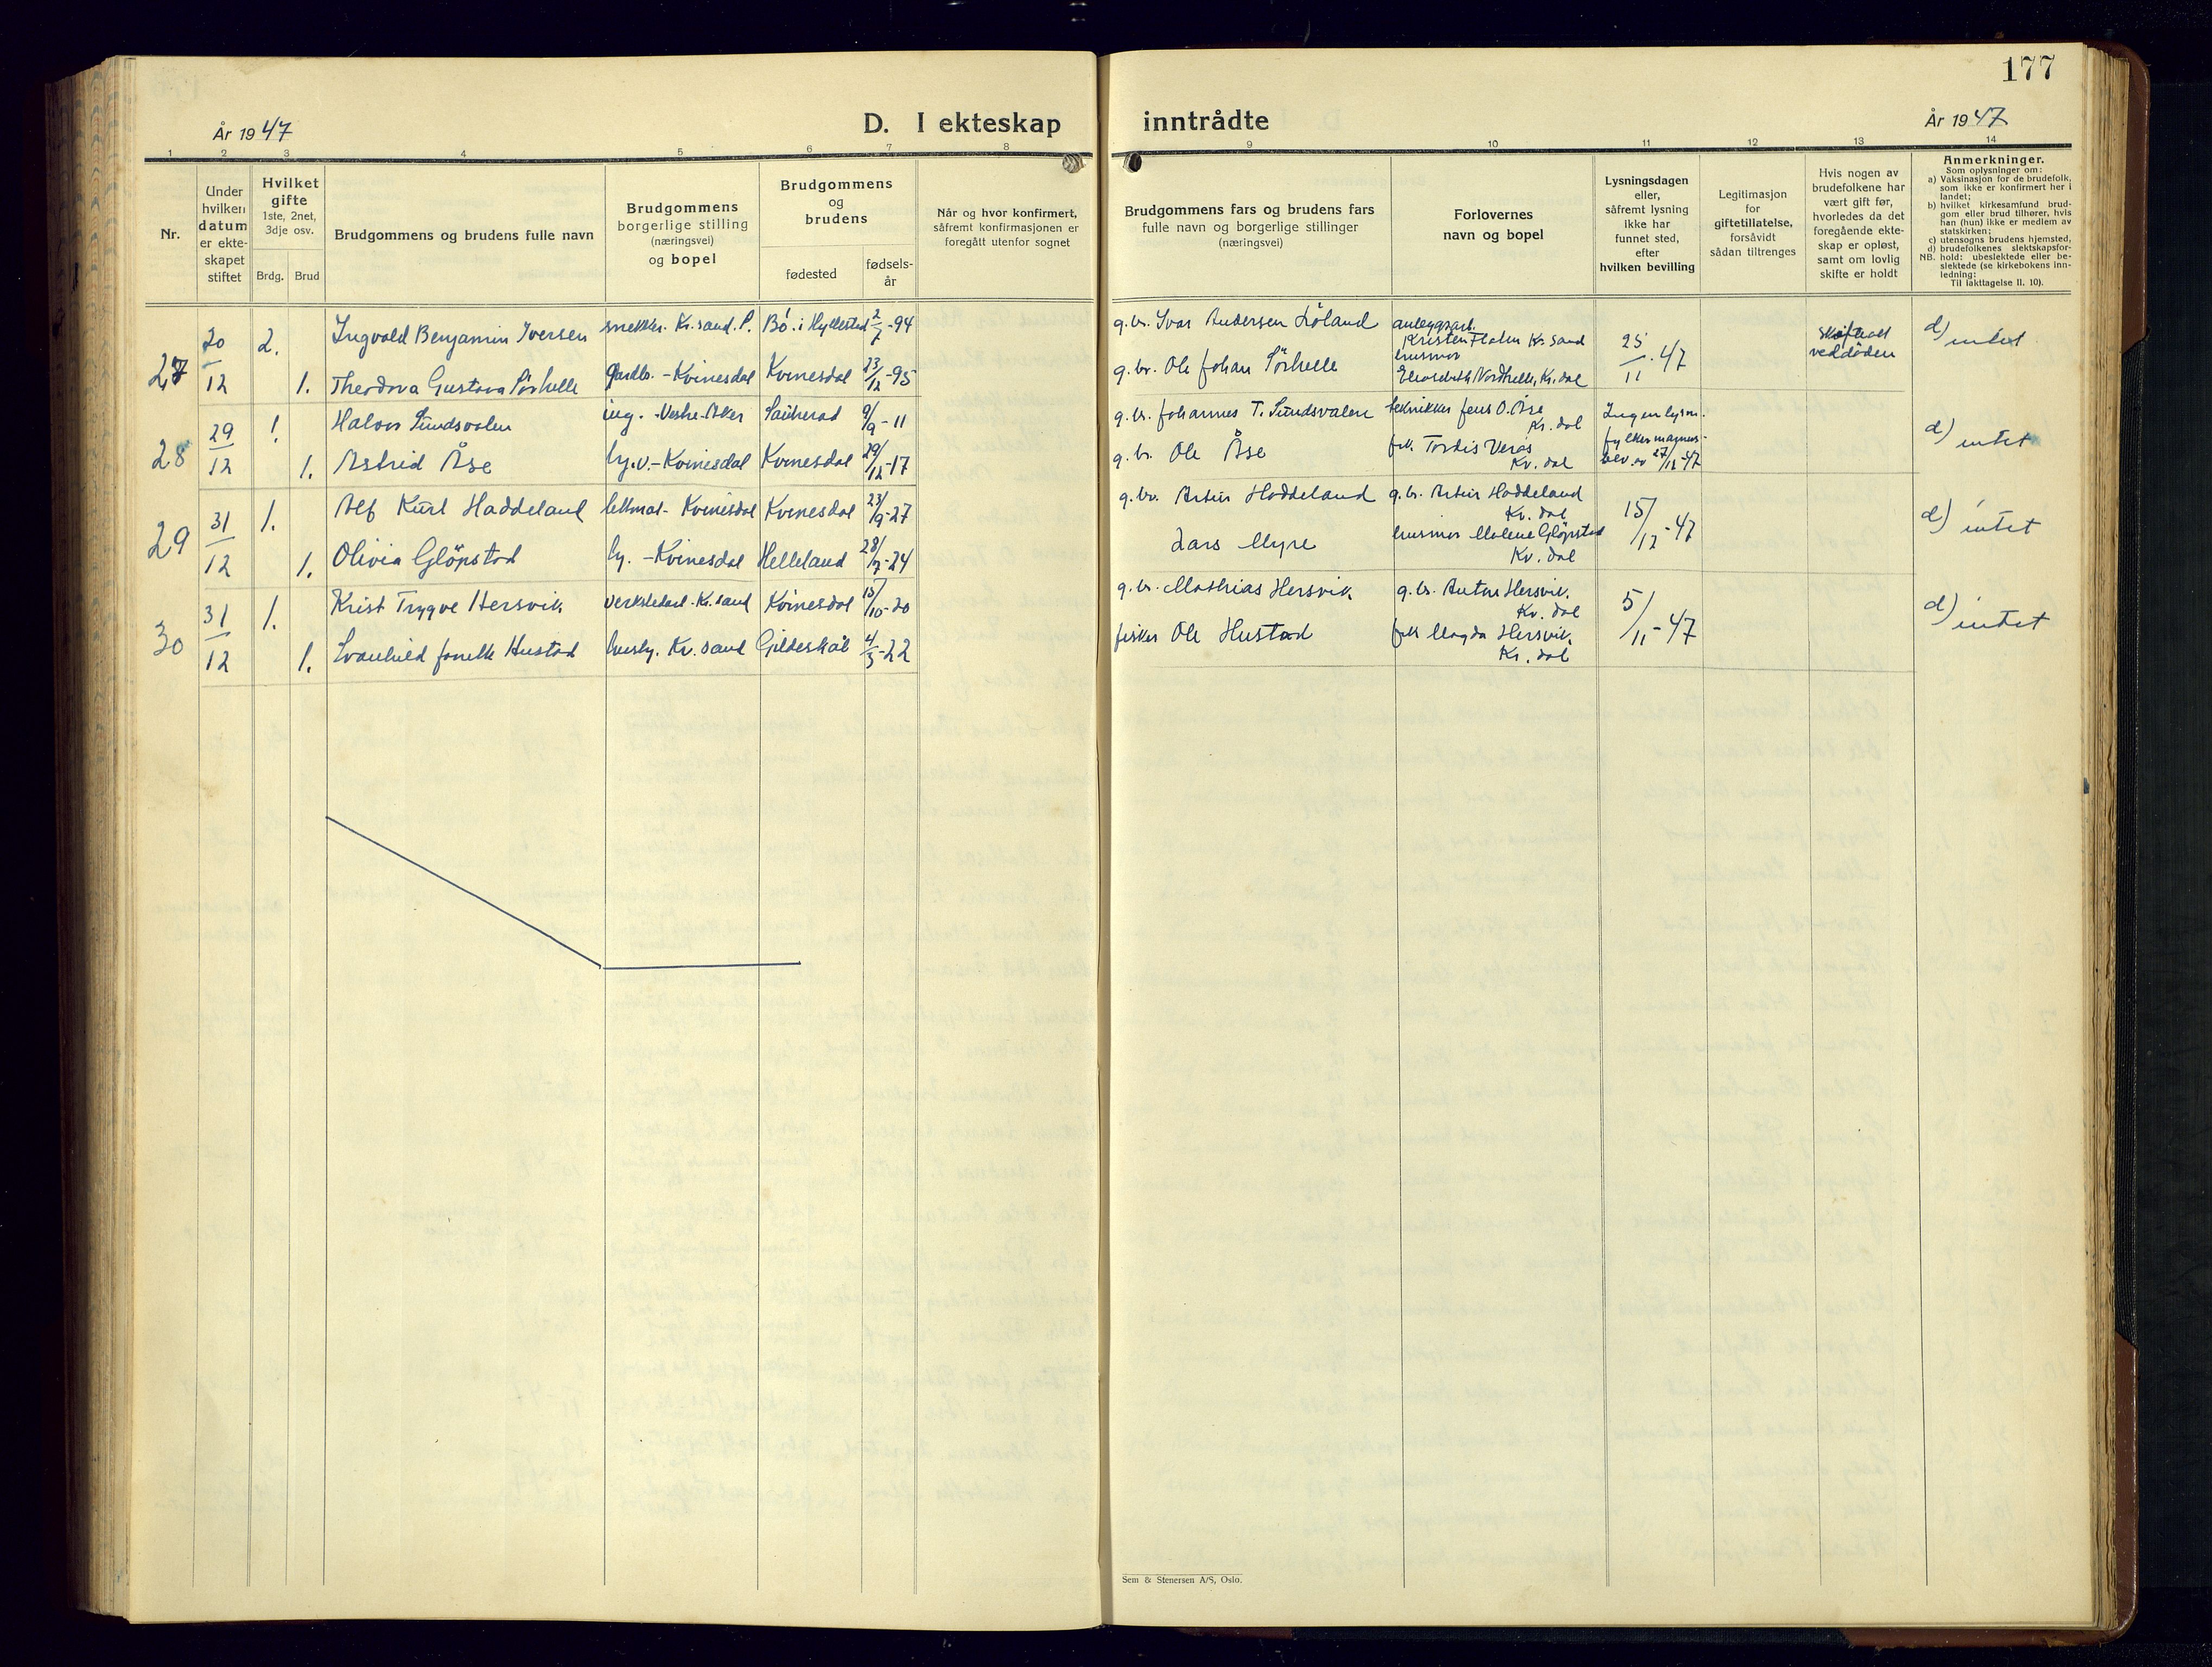 177
År 1947
D. I ekteskap inntrådte
År 1947
1 2 3 4 5 6 7 8 9 10 11 12 13 14
Nr.
Under hvilken datum er ekteskapet stiftet
Hvilket gifte
1ste, 2net, 3dje osv.
Brdg. Brud
Brudgommens og brudens fulle navn
Brudgommens borgerlige stilling (næringsvei) og bopel
Brudgommens og brudens
fødested
fødselsår
Når og hvor konfirmert, såfremt konfirmasjonen er foregått utenfor sognet
Brudgommens fars og brudens fars fulle navn og borgerlige stillinger (næringsvei)
Forlovernes navn og bopel
Lysningsdagen eller, såfremt lysning ikke har funnet sted, efter hvilken bevilling
Legitimasjon for giftetillatelse, forsåvidt sådan tiltrenges
Hvis nogen av brudefolkene har vært gift før, hvorledes da det foregående ekteskap er opløst, samt om lovlig skifte er holdt
Anmerkninger.
Som oplysninger om:
a) Vaksinasjon for de brudefolk, som ikke er konfirmert her i landet;
b) hvilket kirkesamfund brudgom eller brud tilhører, hvis han (hun) ikke er medlem av statskirken;
c) utensogns brudens hjemsted,
d) brudefolkenes slektskapsforhold: ubeslektede eller beslektede (se kirkebokens innledning:
NB.
Til iakttagelse II. 10).
27 20/12 2. Ingvald Benjamin Iversen snekker. Kr.sand. S. Bø. i Hyllestad 2/7-94 g.br. Ivar Andersen Löland anleggsarb. Kristen Flaten Kr. sand 25/11-47 Skifte holdt ved döden d) intet
1. Theodora Gustava Sörhelle gardbr. - Kvinesdal Kvinesdal 23/12-95 g.br. Ole Johan Sörhelle husmor Elisabeth Nordhelle, Kv. dal
28 29/12 1. Halvor Sundsvalen ing. - Vestre-Aker Sauherad 9/9-11 g.br. Johannes T. Sundsvalen tekniker Jens O. Åse Kv. dal Ingen lysn. fylkesmannsbev. av 27/12-47 d) intet
1. Astrid Åse hj.v. - Kvinesdal Kvinesdal 29/12-17 g.br. Ole Åse frk. Tordis Verås Kv. dal
29 31/12 1. Alf Kurt Haddeland lettmat. - Kvinesdal Kvinesdal 23/9-27 g.br. Artur Haddeland g.br. Artur Haddeland Kv. dal 15/12-47 d) intet
1. Olivia Glöpstad hj. - Kvinesdal Helleland 28/7-24 Lars Myre husmor Malene Glöpstad Kv. dal
30 31/12 1. Krist Trygve Hersvik verkstedarb. - Kr. sand Kvinesdal 15/10-20 g.br. Mathias Hersvik g.br. Anton Hersvik, Kv. dal 5/11-47 d) intet
1. Svanhild Jonette Hustad hushj. Kr. sand Gildeskål 4/3-22 fisker Ole Hustad frk Magda Hersvik, Kv. dal
Sem & Stenersen A/S, Oslo.